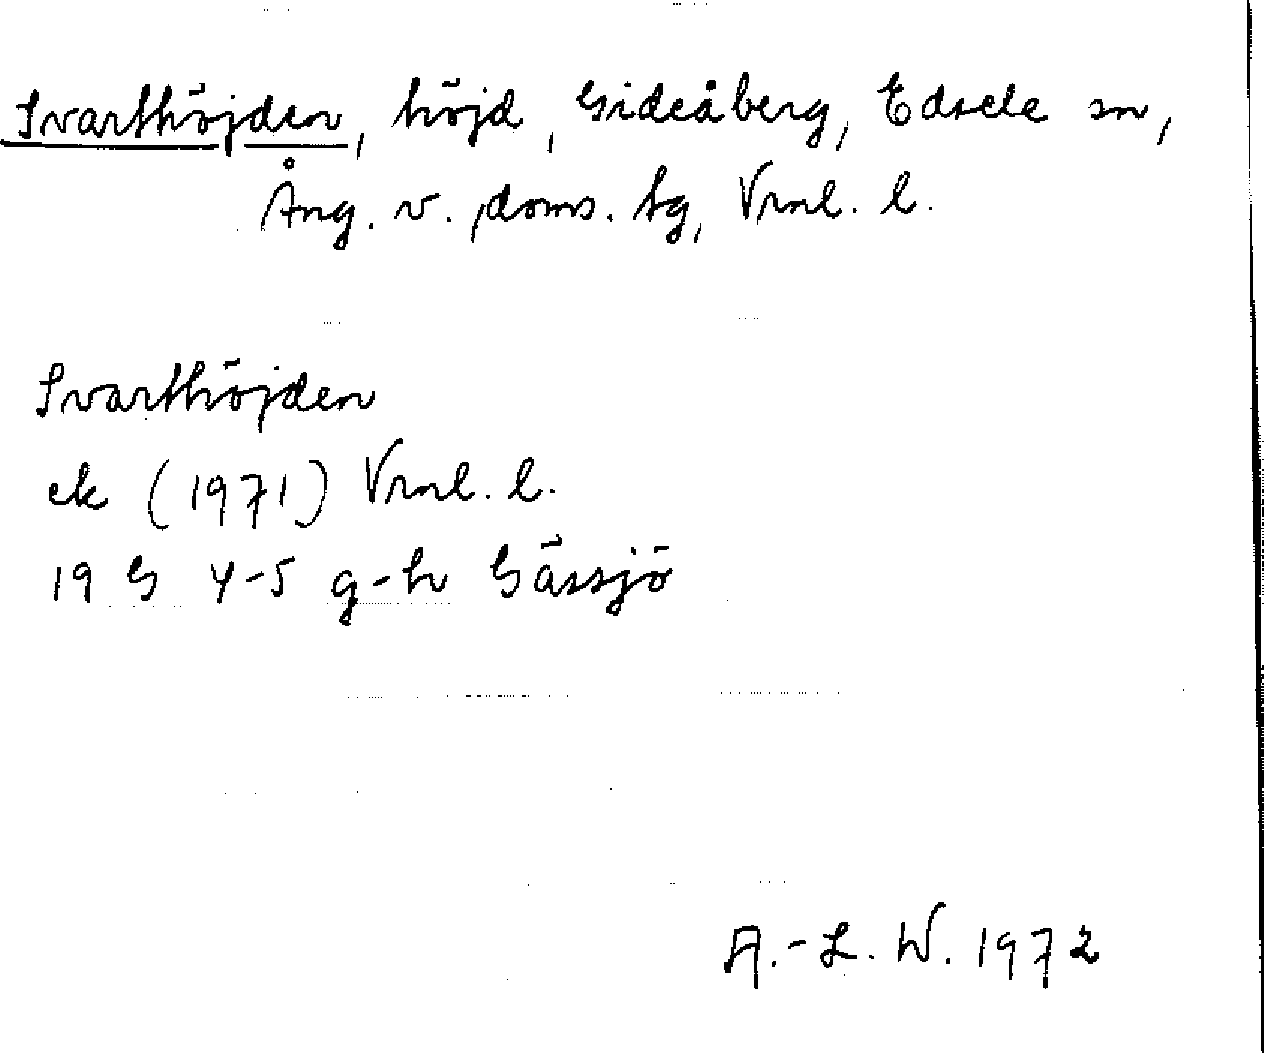 Svarthöjden, höjd, Gideåberg, Edsele sn,
Ång. v. doms. tg, Vrnl. l.
Svarthöjden
ek (1971) Vrnl. l.
19 G 4-5 g-h Gässjö
A.-L. W. 1972